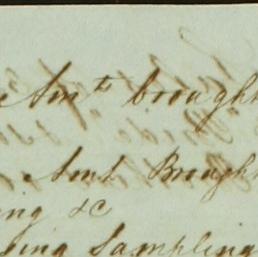 Amts brought
Amt Brought
ing &c
ing Sampling